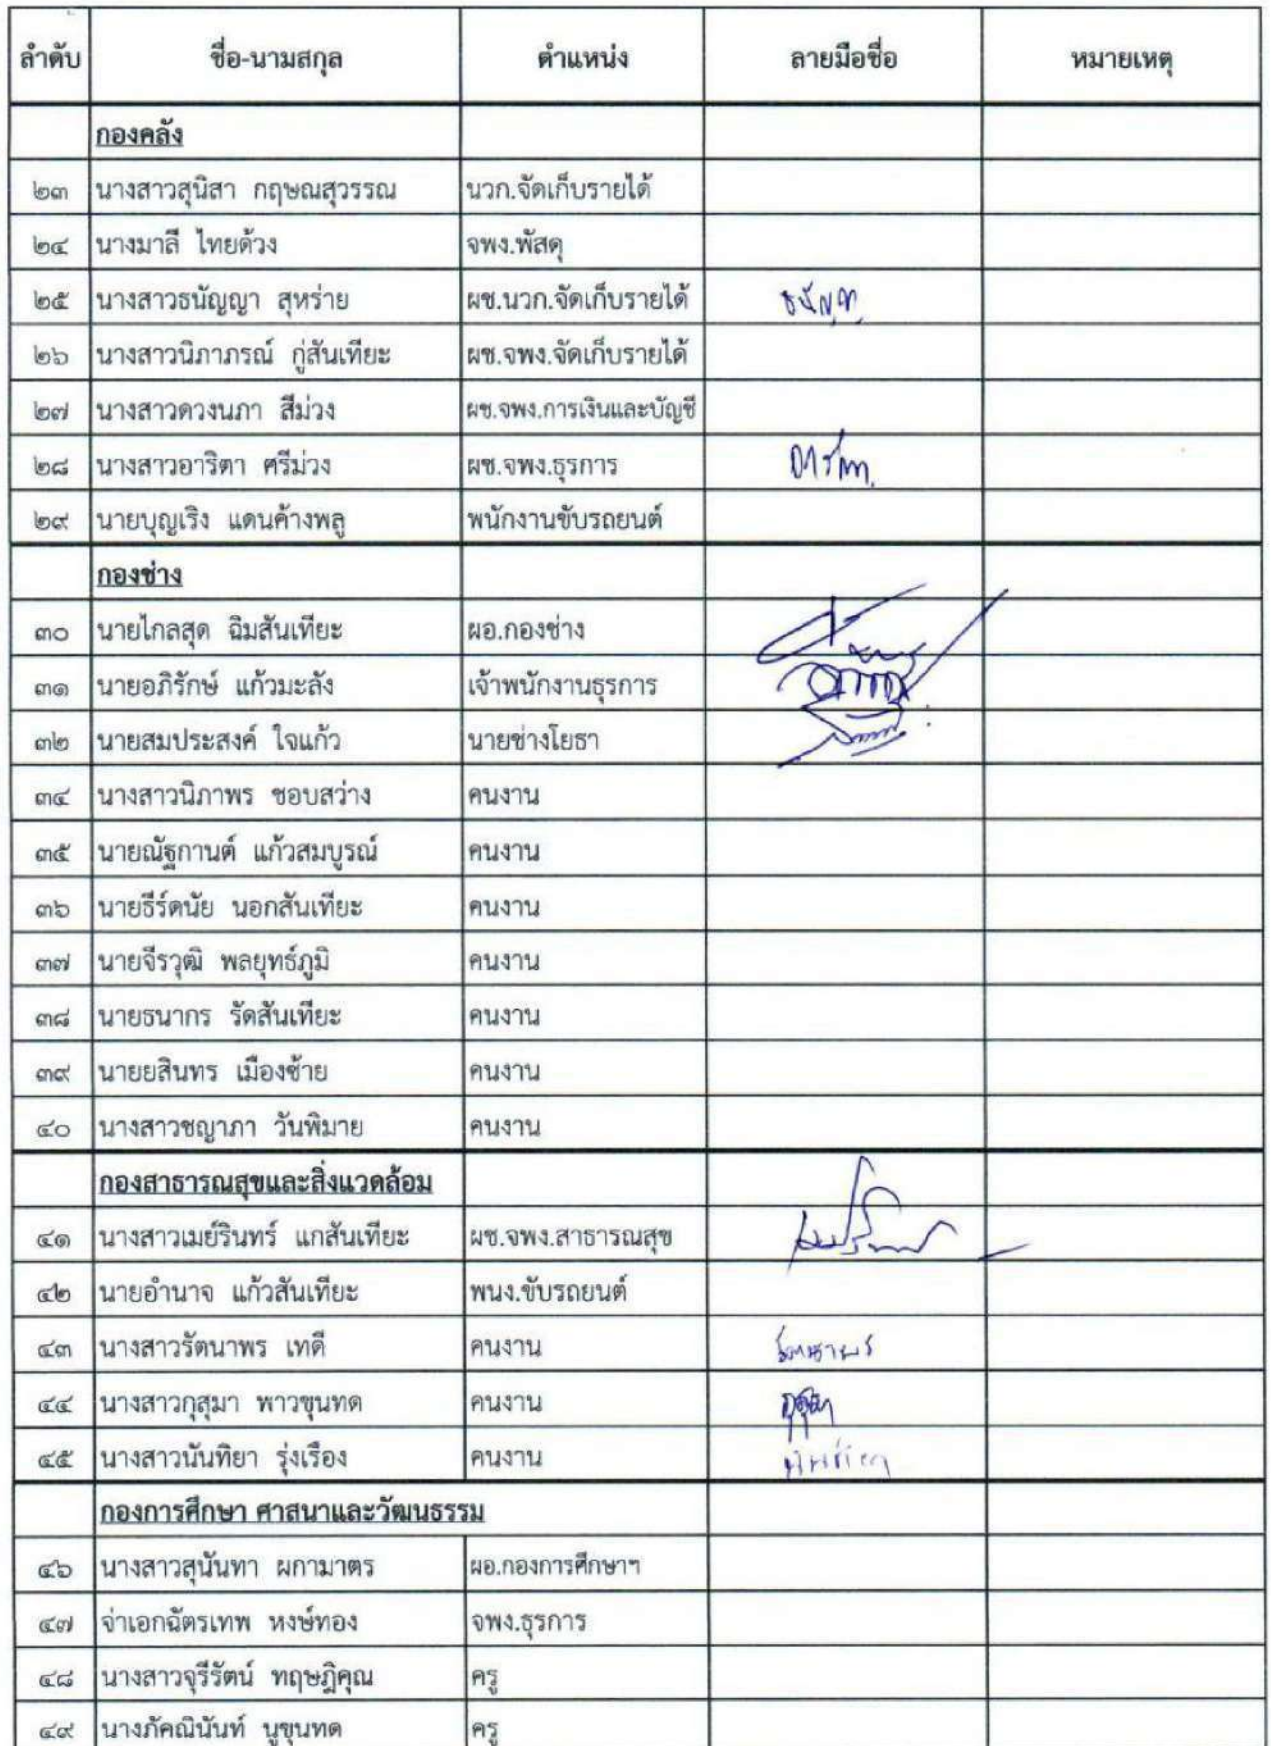 ลำดับ ชื่อ-นามสกุล ตำแหน่ง ลายมือชื่อ หมายเหตุ
กองคลัง
๒๓ นางสาวสุนิสา กฤษณสุวรรณ นวก.จัดเก็บรายได้
๒๔ นางมาลี ไทยด้วง จพง.พัสดุ
๒๕ นางสาวธนัญญา สุหร่าย ผช.นวก.จัดเก็บรายได้
๒๖ นางสาวนิภาภรณ์ กู่สันเทียะ ผช.จพง.จัดเก็บรายได้
๒๗ นางสาวดวงนภา สีม่วง ผช.จพง.การเงินและบัญชี
๒๘ นางสาวอาริตา ศรีม่วง ผช.จพง.ธุรการ
๒๙ นายบุญเริง แดนค้างพลู พนักงานขับรถยนต์
กองช่าง
๓๐ นายไกลสุด ฉิมสันเทียะ ผอ.กองช่าง
๓๑ นายอภิรักษ์ แก้วมะลัง เจ้าพนักงานธุรการ
๓๒ นายสมประสงค์ ใจแก้ว นายช่างโยธา
๓๔ นางสาวนิภาพร ชอบสว่าง คนงาน
๓๕ นายณัฐกานต์ แก้วสมบูรณ์ คนงาน
๓๖ นายธีร์ดนัย นอกสันเทียะ คนงาน
๓๗ นายจีรวุฒิ พลยุทธ์ภูมิ คนงาน
๓๘ นายธนากร รัดสันเทียะ คนงาน
๓๙ นายยสินทร เมืองซ้าย คนงาน
๔๐ นางสาวชญาภา วันพิมาย คนงาน
กองสาธารณสุขและสิ่งแวดล้อม
๔๑ นางสาวเมย์รินทร์ แกสันเทียะ ผช.จพง.สาธารณสุข
๔๒ นายอำนาจ แก้วสันเทียะ พนง.ขับรถยนต์
๔๓ นางสาวรัตนาพร เทดี คนงาน รัตนาพร
๔๔ นางสาวกุสุมา พาวขุนทด คนงาน กุสุมา
๔๕ นางสาวนันทิยา รุ่งเรือง คนงาน นันทิยา
กองการศึกษา ศาสนาและวัฒนธรรม
๔๖ นางสาวสุนันทา ผกามาตร ผอ.กองการศึกษาฯ
๔๗ จ่าเอกฉัตรเทพ หงษ์ทอง จพง.ธุรการ
๔๘ นางสาวจุรีรัตน์ ทฤษฎิคุณ ครู
๔๙ นางภัคณินันท์ นูขุนทด ครู